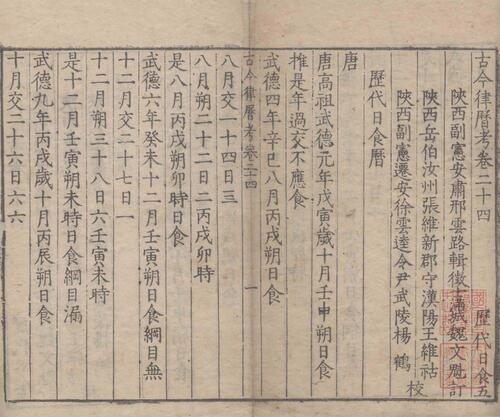 古今律曆考卷二十四 歷代日食五
陝西副憲安肅邢雲路輯 徵士滿城魏文魁訂
陝西岳伯汝州張維新 郡守漢陽王維祜
陝西副憲遷安徐雲逵 令尹武陵楊鶴 校
歷代日食曆
唐
唐高祖武德元年戊寅歲十月壬申朔日食
推是年過交不應食
武德四年辛巳八月丙戌朔日食
古今律曆考 卷二十四 一
八月交一十四日三
八月朔二十二日二丙戌卯時
是八月丙戌朔卯時日食
武德六年癸未十二月壬寅朔日食綱目無
十二月交二十七日一
十二月朔三十八日六壬寅未時
是十二月壬寅朔未時日食綱目漏
武德九年丙戌歲十月丙辰朔日食
十月交二十六日六六